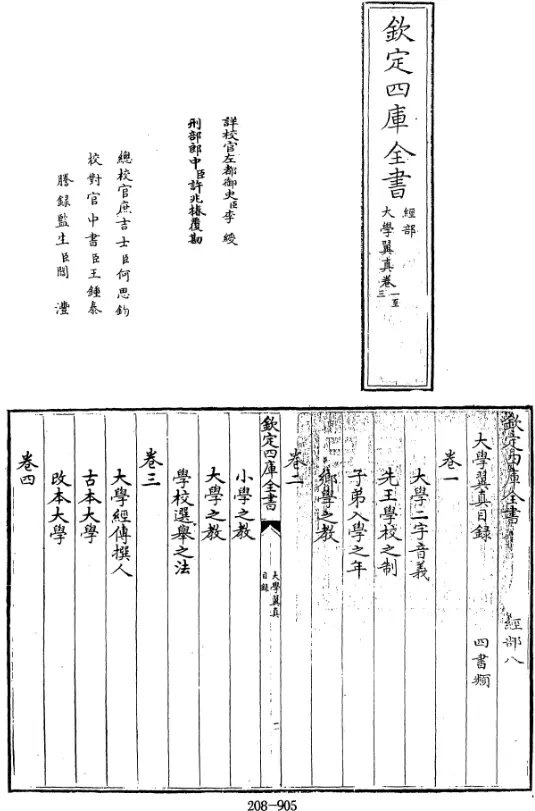 欽定四庫全書
經部
大學翼真卷一至三
詳校官左都御史臣李綬
刑部郎中臣許兆椿覆勘
總校官庶吉士臣何思鈞
校對官中書臣王鍾泰
謄錄監生臣閻灃
欽定四庫全書
經部八
大學翼真目錄
四書類
卷一
大學二字音義
先王學校之制
子弟入學之年
鄉學之教
卷二
欽定四庫全書
大學翼真
目錄
一
小學之教
大學之教
學校選舉之法
卷三
大學經傳撰人
古本大學
改本大學
卷四
208-905